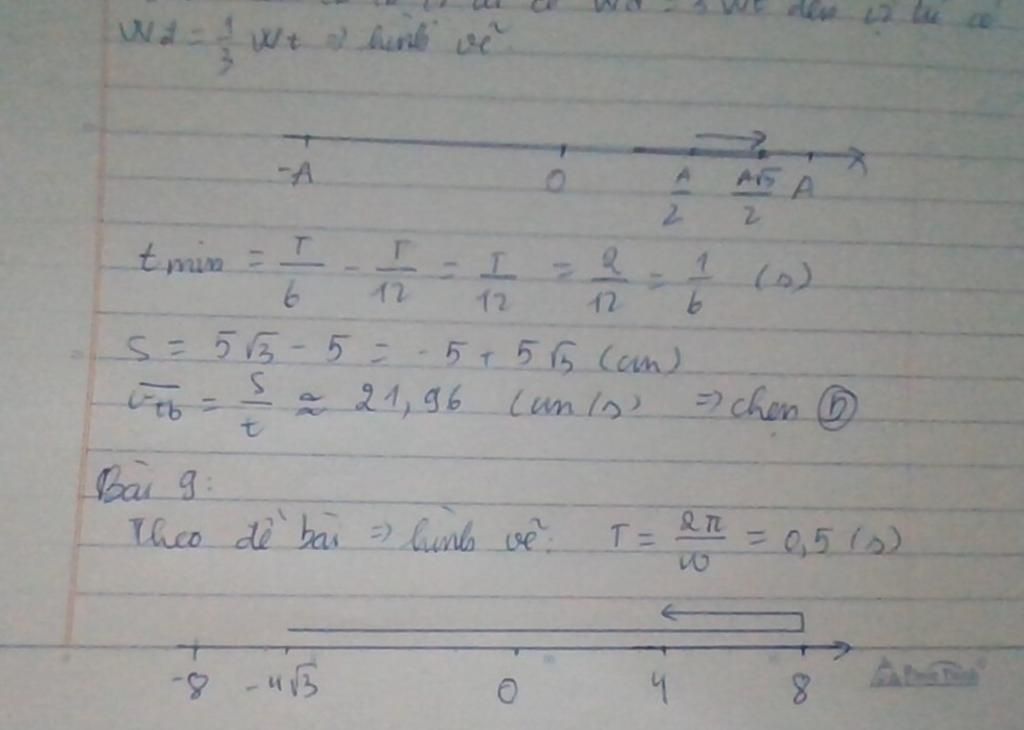 Wđ = 3 Wt đến vị trí có
Wđ = 1/3 Wt => hình vẽ
-A O A/2 A√3/2 A x
t min = T/6 - T/12 = T/12 = 2/12 = 1/6 (s)
S = 5√3 - 5 = -5 + 5√3 (cm)
v̅tb = S/t ≈ 21,96 (cm/s) => chọn Ⓓ
Bài 9:
Theo đề bài => hình vẽ: T = 2π/ω = 0,5 (s)
-8 -4√3 O 4 8